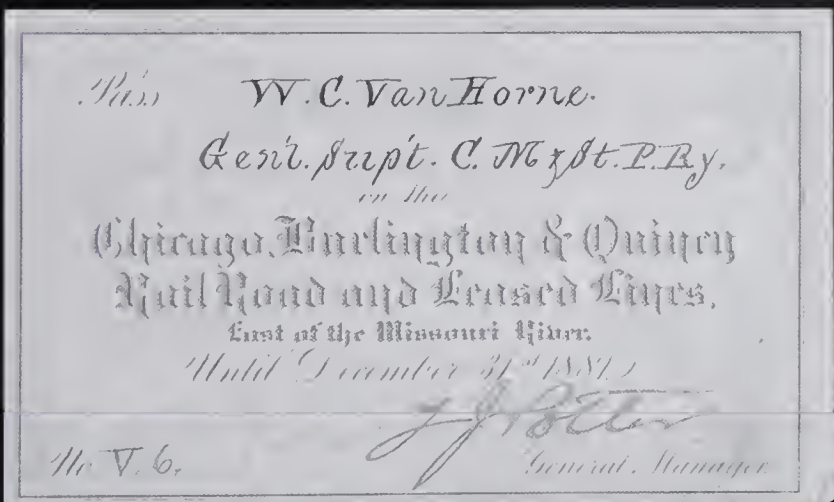 Pass W. C. Van Horne.
Gen'l. Sup't. C. M & St. P. Ry.
on the
Chicago, Burlington & Quincy
Rail Road and Leased Lines,
East of the Missouri River.
Until December 31st 1881,
T J Potter
No. V. 6.
General Manager